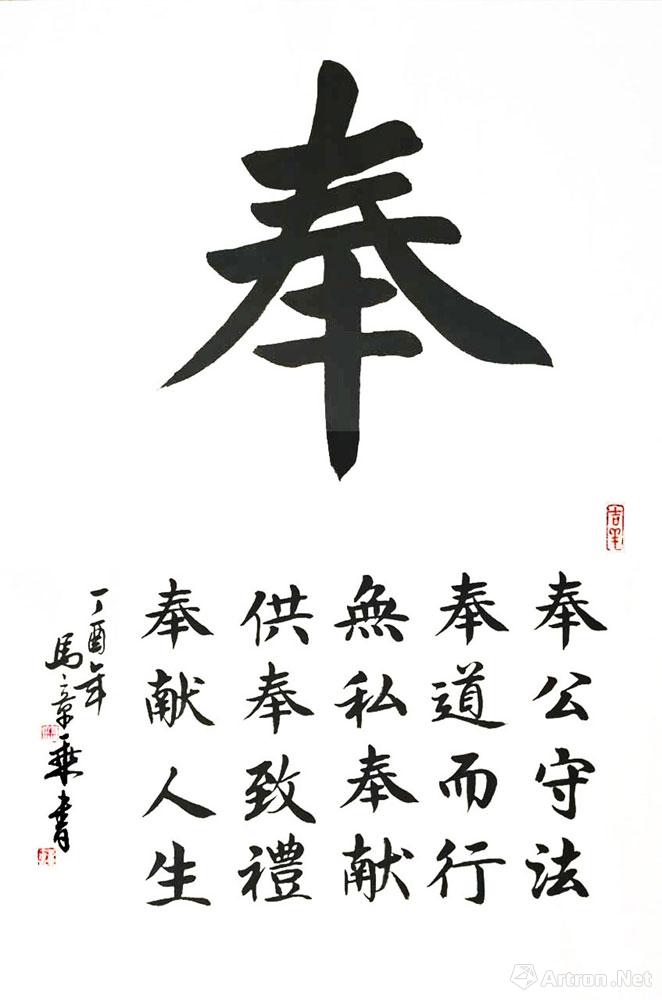 奉
奉公守法
奉道而行
無私奉献
供奉致禮
奉献人生
丁酉年
馬章乘書
吉羊
Artron.Net